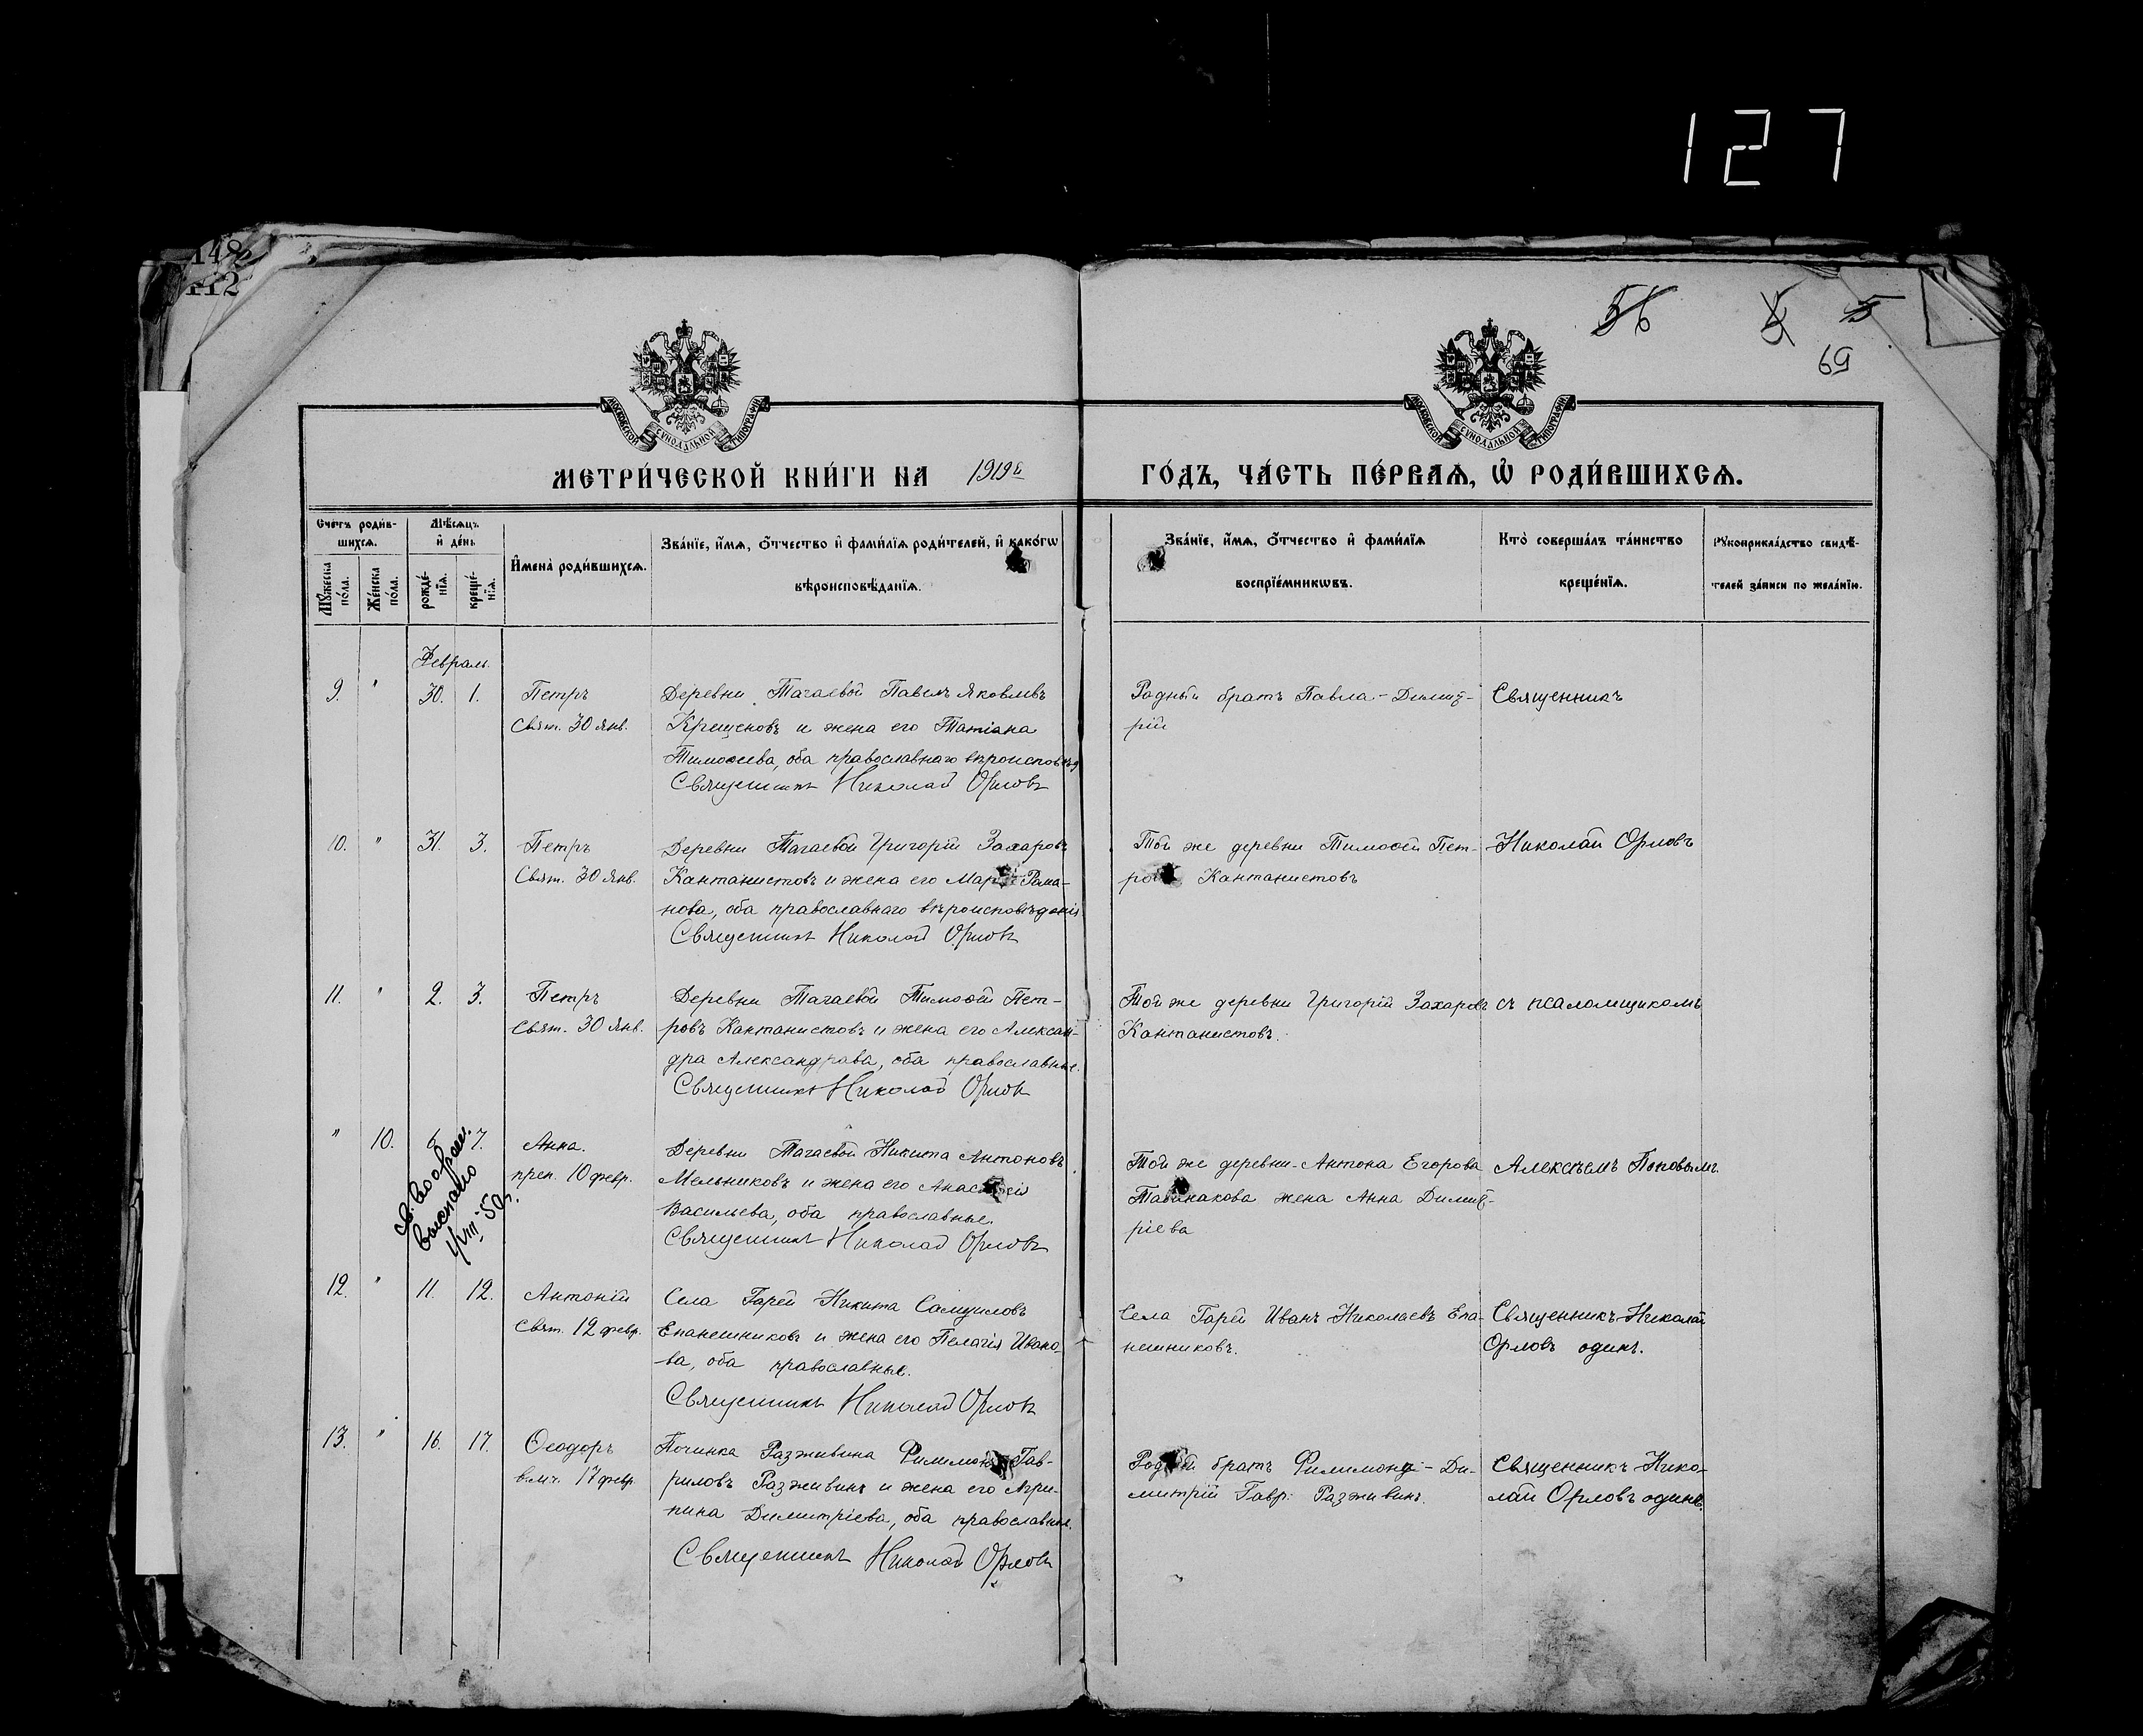 127
148
112
56
5
5
69
МОСКОВСКОЙ СУНОДАЛЬНОЙ ТИПОГРАФІИ
МОСКОВСКОЙ СУНОДАЛЬНОЙ ТИПОГРАФІИ
МЕТРИ́ЧЕСКОЙ КНИ́ГИ НА 1919й ГО́ДЪ, ЧА́СТЬ ПЕ́РВАѦ, Ѡ҆ РОДИ́ВШИХСѦ.
Сче́тъ роди́в-
шихсѧ.
Мꙋ́жеска по́ла.
Же́нска по́ла.
Мѣ́сѧцъ
и҆ де́нь
рожде́-
нїѧ.
креще́-
нїѧ.
И҆мена̀ роди́вшихсѧ.
Зва́нїе, и҆́мѧ, ѻ҆́тчество и҆ фами́лїѧ роди́телей, и҆ како́гѡ
вѣроисповѣ́данїѧ.
Зва́нїе, и҆́мѧ, ѻ҆́тчество и҆ фами́лїѧ
воспрїе́мникѡвъ.
Кто̀ соверша́лъ та́инство
креще́нїѧ.
Рꙋкоприкла́дство свидѣ́-
телей за́писи по жела́нїю.
Февраль.
9. " 30. 1. Петръ
Свят. 30 Янв.
Деревни Тагаевой Павелъ Яковлевъ
Крещеновъ и жена его Татіана
Тимоѳеева, оба православнаго вѣроисповѣд
Священникъ Николай Орловъ
Родный братъ Павла - Димит-
рій
Священникъ
10. " 31. 3. Петръ
Свят. 30 Янв.
Деревни Тагаевой Григорій Захаровъ
Кантанистовъ и жена его Мар Рома-
нова, оба православнаго вѣроисповѣданія
Священникъ Николай Орловъ
Той же деревни Тимоѳей Пет-
ро Кантанистовъ
Николай Орловъ
11. " 2. 3. Петръ
Свят. 30 Янв.
Деревни Тагаевой Тимоѳей Пет-
ровъ Кантанистовъ и жена его Алексан-
дра Александрова, оба православные.
Священникъ Николай Орловъ
Той же деревни Григорій Захаровъ
Кантанистовъ.
съ псаломщикомъ
" 10. 6. 7. Анна.
преп. 10 февр.
Деревни Тагаевой Никита Антоновъ
Мельниковъ и жена его Анас сія
Васильева, оба православные.
Священникъ Николай Орловъ
Той же деревни - Антона Егорова
Табинакова жена Анна Димит-
ріева
Алексѣемъ Поповымъ
выслано
1/VIII-50г.
12. " 11. 12. Антоній
Свят. 12 февр.
Села Гарей Никита Самуиловъ
Епанешниковъ и жена его Пелагія Ивано-
ва, оба православные.
Священникъ Николай Орловъ
Села Гарей Иванъ Николаевъ Епа-
нешниковъ.
Священникъ Николай
Орловъ одинъ.
13. " 16. 17. Ѳеодоръ
влмч. 17 февр.
Починка Разживина Филимонъ Гав-
риловъ Разживинъ и жена его Агри-
пина Димитріева, оба православные.
Священникъ Николай Орловъ
Род й братъ Филимона - Ди-
митрій Гавр. Разживинъ.
Священникъ Нико-
лай Орловъ одинъ.